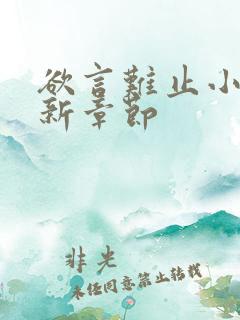 欲言難止小
新章節
非光
未經同意禁止轉載